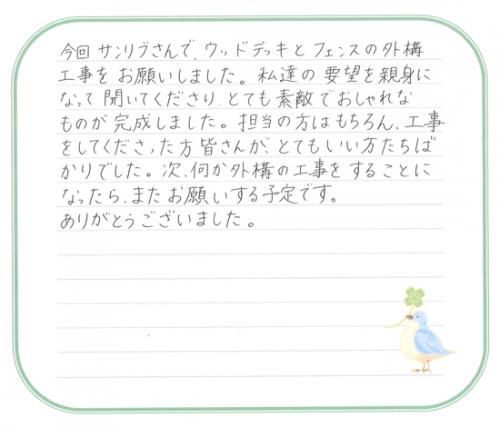 今回 サンリブさんで、ウッドデッキとフェンスの外構
工事をお願いしました。私達の要望を親身に
なって聞いてくださり、とても素敵でおしゃれな
ものが完成しました。担当の方はもちろん、工事
をしてくださった方皆さんが、とてもいい方たちば
かりでした。次、何か外構の工事をすることに
なったら、またお願いする予定です。
ありがとうございました。